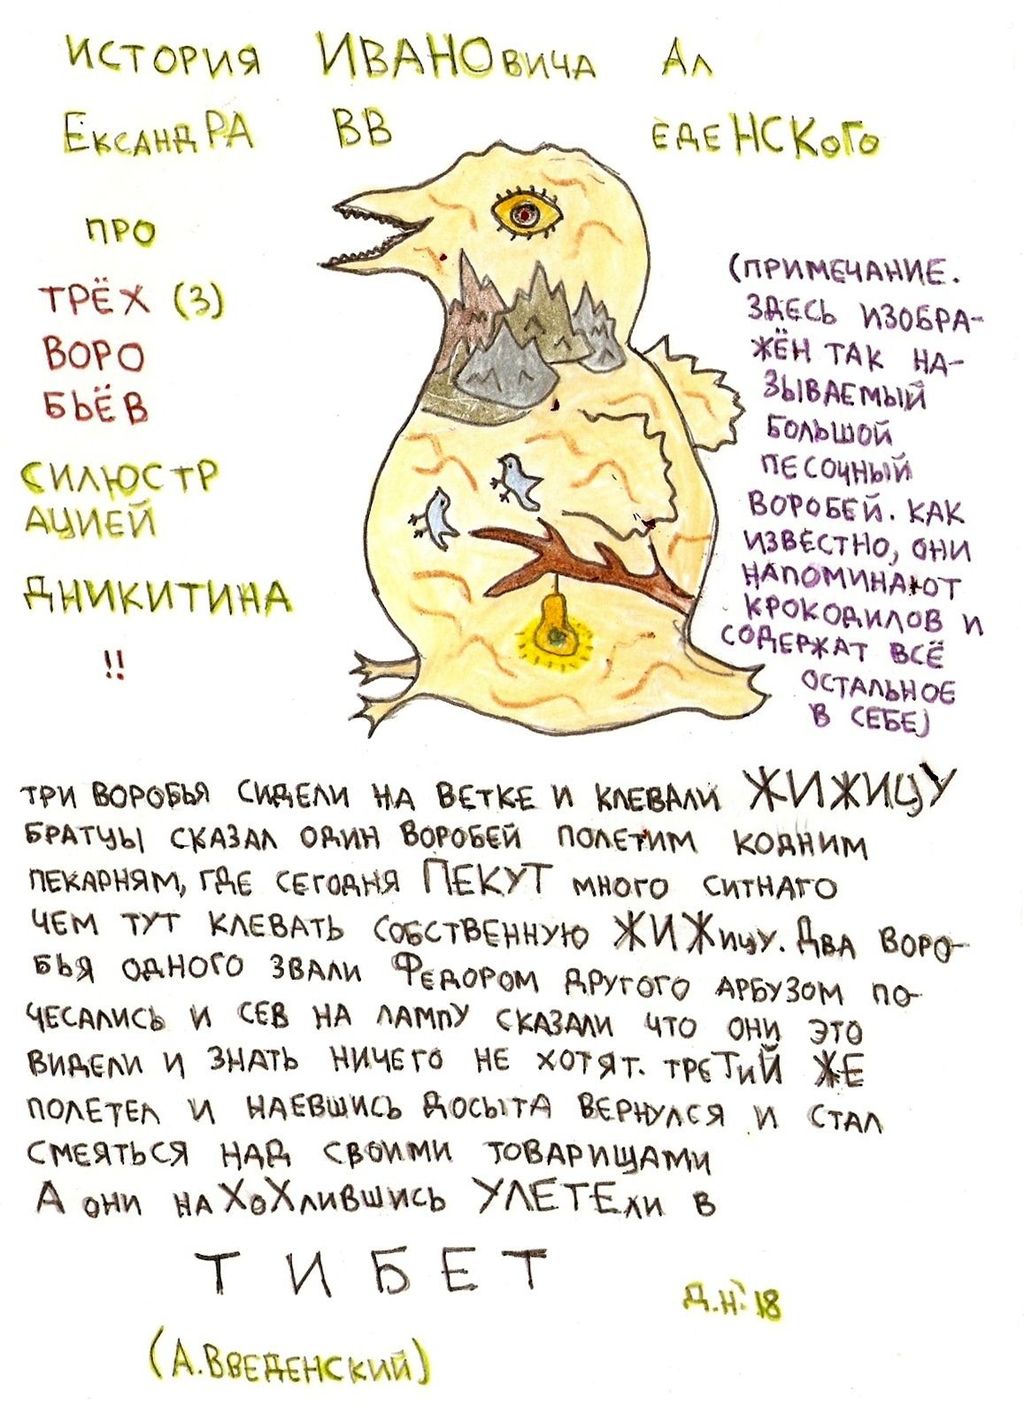 ИСТОРИЯ ИВАНОВИЧА АЛ
ЕКСАНДРА ВВ ЕДЕНСКОГО
ПРО
ТРЁХ (3)
ВОРО
БЬЁВ
СИЛЮСТР
АЦИЕЙ
ДНИКИТИНА
!!
(ПРИМЕЧАНИЕ.
ЗДЕСЬ ИЗОБРА-
ЖЁН ТАК НА-
ЗЫВАЕМЫЙ
БОЛЬШОЙ
ПЕСОЧНЫЙ
ВОРОБЕЙ. КАК
ИЗВЕСТНО, ОНИ
НАПОМИНАЮТ
КРОКОДИЛОВ И
СОДЕРЖАТ ВСЁ
ОСТАЛЬНОЕ
В СЕБЕ)
ТРИ ВОРОБЬЯ СИДЕЛИ НА ВЕТКЕ И КЛЕВАЛИ ЖИЖИЦУ
БРАТЦЫ СКАЗАЛ ОДИН ВОРОБЕЙ ПОЛЕТИМ КОДНИМ
ПЕКАРНЯМ, ГДЕ СЕГОДНЯ ПЕКУТ МНОГО СИТНАГО
ЧЕМ ТУТ КЛЕВАТЬ СОБСТВЕННУЮ ЖИЖИЦУ. ДВА ВОРО-
БЬЯ ОДНОГО ЗВАЛИ ФЕДОРОМ ДРУГОГО АРБУЗОМ ПО-
ЧЕСАЛИСЬ И СЕВ НА ЛАМПУ СКАЗАЛИ ЧТО ОНИ ЭТО
ВИДЕЛИ И ЗНАТЬ НИЧЕГО НЕ ХОТЯТ. ТРЕТИЙ ЖЕ
ПОЛЕТЕЛ И НАЕВШИСЬ ДОСЫТА ВЕРНУЛСЯ И СТАЛ
СМЕЯТЬСЯ НАД СВОИМИ ТОВАРИЩАМИ
А ОНИ НАХОХЛИВШИСЬ УЛЕТЕЛИ В
ТИБЕТ
Д.Н.'18
(А.ВВЕДЕНСКИЙ)